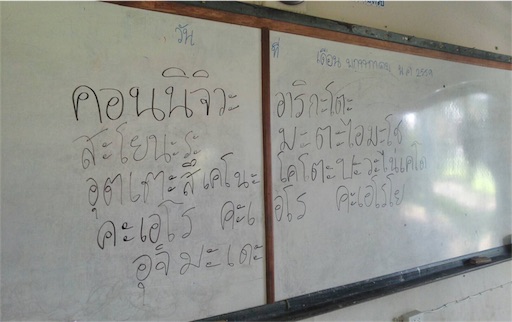 วัน ที่ เดือน พฤษภาคม พ.ศ 2559
คอนนิจิวะ
สะโยนะระ
อุตเตาะสึเคโนะ
คะเอโร คะเ
อุจิมะเดะ
อาริกะโตะ
มะตะไอมะโช
โคโตะบะวะไนเคโด
อโร คะเอโรโย